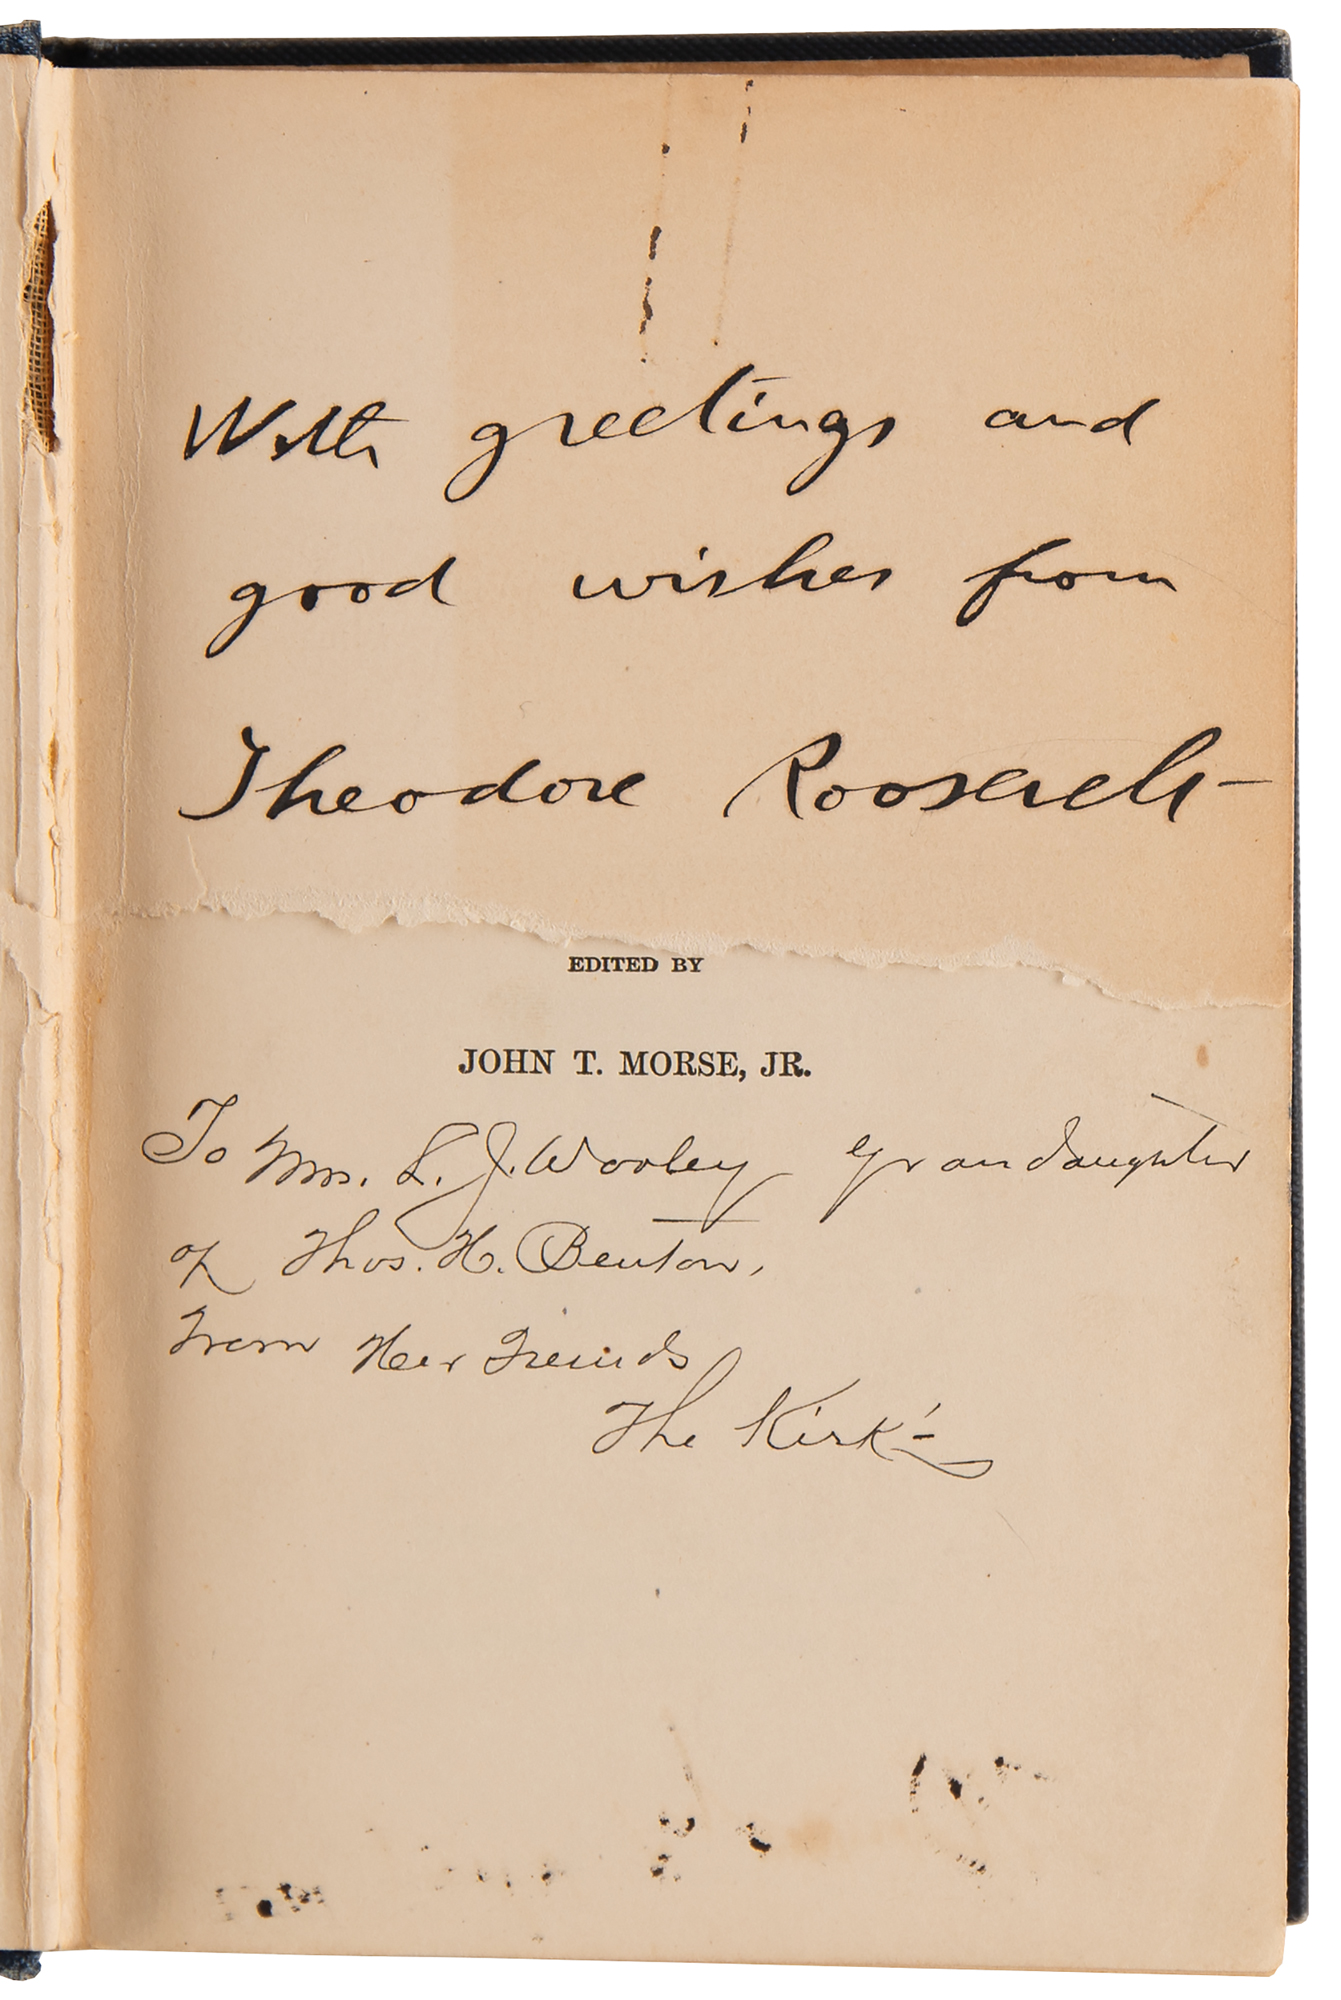 With greetings and
good wishes from
Theodore Roosevelt
EDITED BY
JOHN T. MORSE, JR.
To Mrs. L. J. Worley Grandaughter
of Thos. H. Benton,
From Her Freinds
The Kirk's